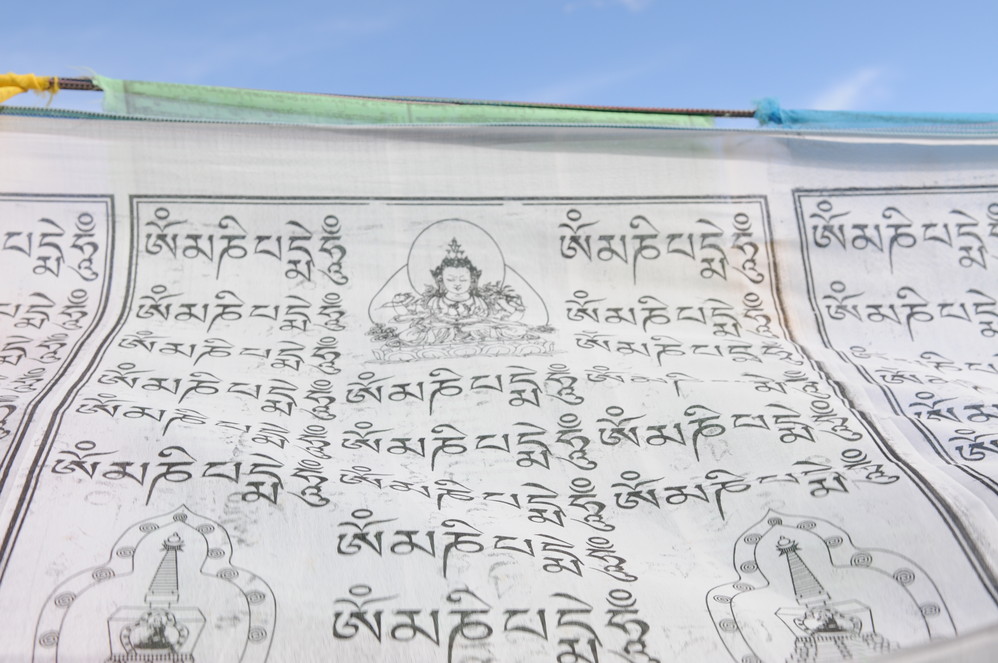 པདྨེཧཱུྃ ཨོཾམཎི པདྨེཧཱུྃ ཨོཾམཎི པདྨེཧཱུྃ ཨོཾམཎི པདྨེཧཱུྃ
པདྨེཧཱུྃ ཨོཾམཎི པདྨེཧཱུྃ ཨོཾམཎི པདྨེཧཱུྃ ཨོཾམཎི པདྨེ
ཨོཾམཎི པདྨེཧཱུྃ ཨོཾམཎི པདྨེཧཱུྃ
ཨོཾམཎི པདྨེཧཱུྃ ཨོཾམཎི པདྨེཧཱུྃ
ཨོཾམཎི པདྨེཧཱུྃ ཨོཾམཎི པདྨེཧཱུྃ ཨོཾམཎི པདྨེཧཱུྃ
ཨོཾམཎི པདྨེཧཱུྃ ཨོཾམཎི པདྨེཧཱུྃ ཨོཾམཎི པདྨེཧཱུྃ
ཨོཾམཎི པདྨེཧཱུྃ
ཨོཾམཎི པདྨེཧཱུྃ